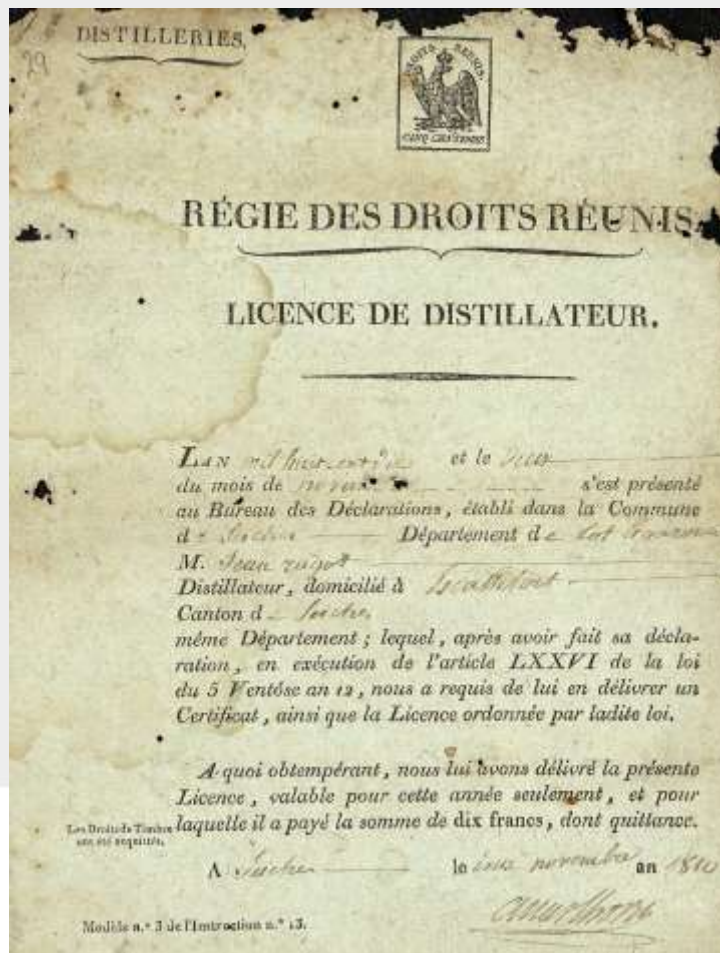 DISTILLERIES.
29
DROITS RÉUNIS.
CINQ CENTIMES
RÉGIE DES DROITS RÉUNIS.
LICENCE DE DISTILLATEUR.
LAN mil huit cent dix et le
du mois de novembre s'est présenté
au Bureau des Déclarations, établi dans la Commune
d Département de Lot
M. Jean
Distillateur, domicilié à
Canton d
même Département ; lequel, après avoir fait sa décla-
ration, en exécution de l'article LXXVI de la loi
du 5 Ventôse an 12, nous a requis de lui en délivrer un
Certificat, ainsi que la Licence ordonnée par ladite loi.
A quoi obtempérant, nous lui avons délivré la présente
Licence, valable pour cette année seulement, et pour
laquelle il a payé la somme de dix francs, dont quittance.
Les Droits de Timbre
ont été acquittés.
A le novembre an 1810
Modèle n.º 3 de l'Instruction n.º 13.